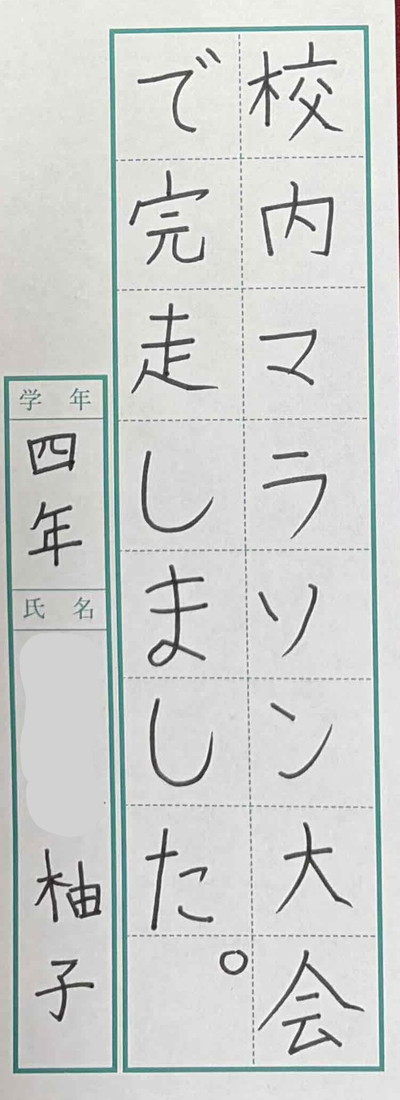 校内マラソン大会
で完走しました。
学年
四年
氏名
柚子